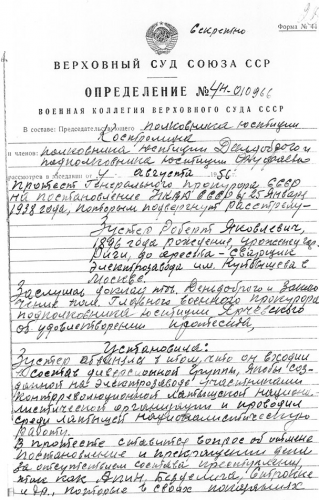 Секретно
Форма № 4
ВЕРХОВНЫЙ СУД СОЮЗА ССР
ОПРЕДЕЛЕНИЕ № 4н-010966
ВОЕННАЯ КОЛЛЕГИЯ ВЕРХОВНОГО СУДА СССР
В составе: Председательствующего полковника юстиции
и членов: полковника юстиции и
подполковника юстиции
рассмотрела в заседании от 4 августа 1956 г.
протест Генерального прокурора СССР
на постановление НКВД СССР от 25 января
1938 года, которым подвергнут расстрелу-
Зустер Роберт Яковлевич,
1896 года рождения, уроженец гор.
Риги, до ареста - сварщик
Электрозавода им. Куйбышева г.
Москве.
Заслушав доклад тов. и заклю-
чение пом. Главного военного прокурора
подполковника юстиции
об удовлетворении протеста,
Установила:
Зустер обвинялся в том, что он входил
в состав диверсионной группы, якобы соз-
данной на Электрозаводе участниками
контрреволюционной латышской национа-
листической организации и проводил
среди латышей националистическую
работу.
В протесте ставится вопрос об отмене
постановления и прекращении дела
за отсутствием состава преступления,
так как
и др., которые в своих показаниях